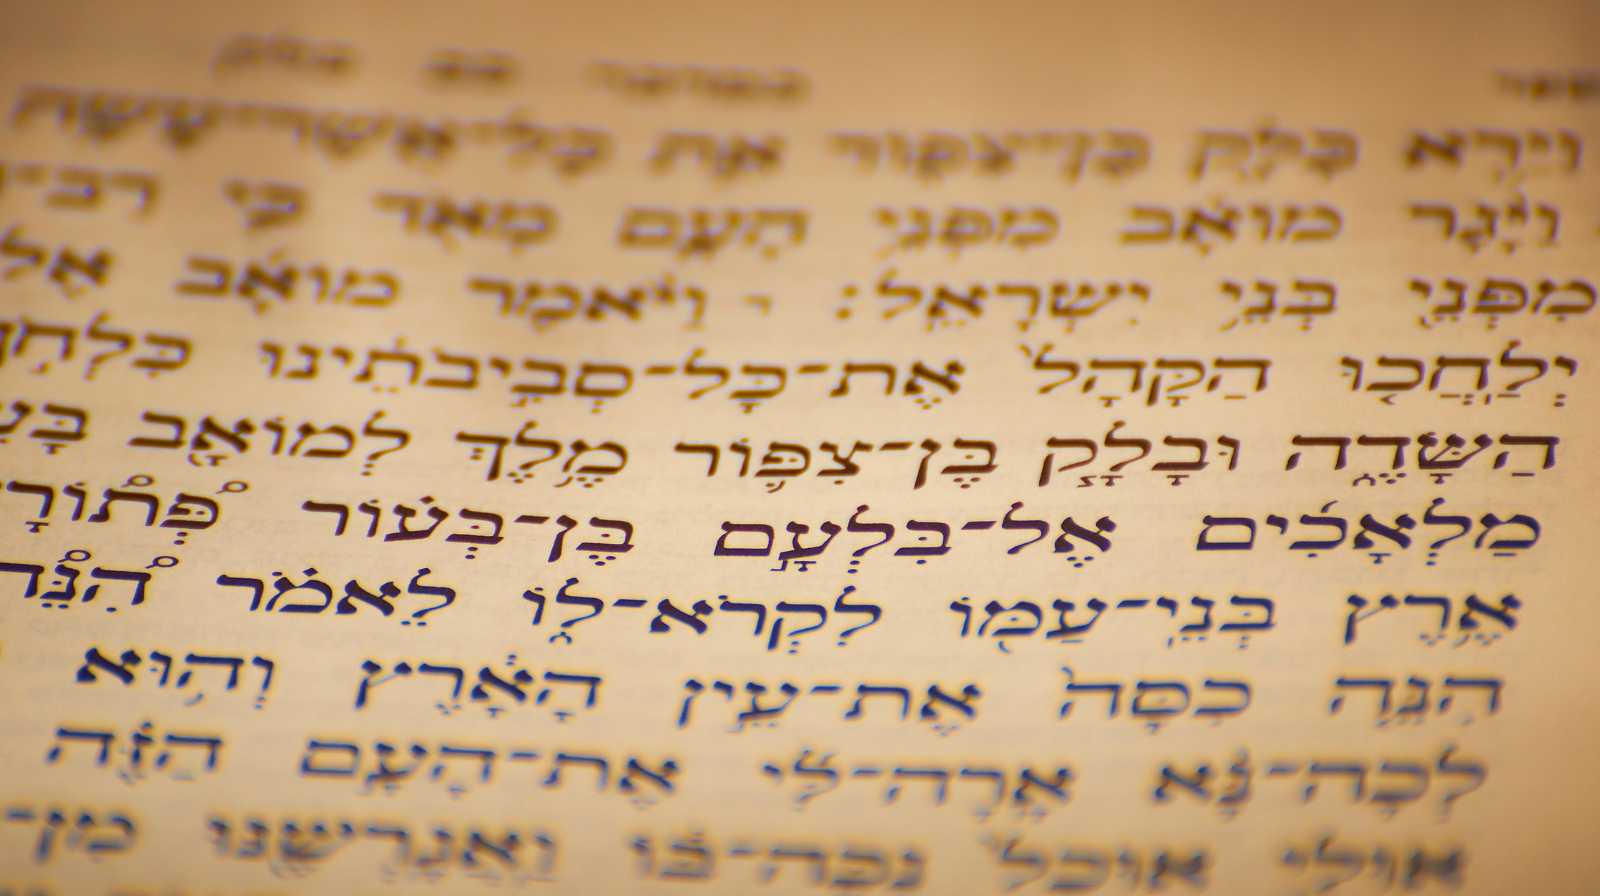 במדבר כב בלק
וַיַּ֥רְא בָּלָ֖ק בֶּן־צִפּ֑וֹר אֵ֛ת כָּל־אֲשֶׁר־עָשָׂ֥ה
וַיָּ֨גָר מוֹאָ֜ב מִפְּנֵ֥י הָעָ֛ם מְאֹ֖ד כִּ֣י רַב־
מִפְּנֵ֖י בְּנֵ֥י יִשְׂרָאֵֽל׃ וַיֹּ֨אמֶר מוֹאָ֜ב אֶל
יְלַחֲכ֤וּ הַקָּהָל֙ אֶת־כָּל־סְבִ֣יבֹתֵ֔ינוּ
הַשָּׂדֶ֑ה וּבָלָ֧ק בֶּן־צִפּ֛וֹר מֶ֥לֶךְ לְמוֹאָ֖ב
מַלְאָכִ֜ים אֶל־בִּלְעָ֣ם בֶּן־בְּע֗וֹר פְּ֠תוֹרָ
אֶ֥רֶץ בְּנֵֽי־עַמּ֖וֹ לִקְרֹא־ל֑וֹ לֵאמֹ֗ר הִ֠נֵּה
הִנֵּ֤ה כִסָּה֙ אֶת־עֵ֣ין הָאָ֔רֶץ וְה֥וּא
לְכָה־נָּ֜א אָֽרָה־לִּ֣י אֶת־הָעָ֣ם הַזֶּ֗ה
אוּלַ֤י אוּכַל֙ נַכֶּה־בּ֔וֹ וַאֲגָרְשֶׁ֖נּוּ מִן־